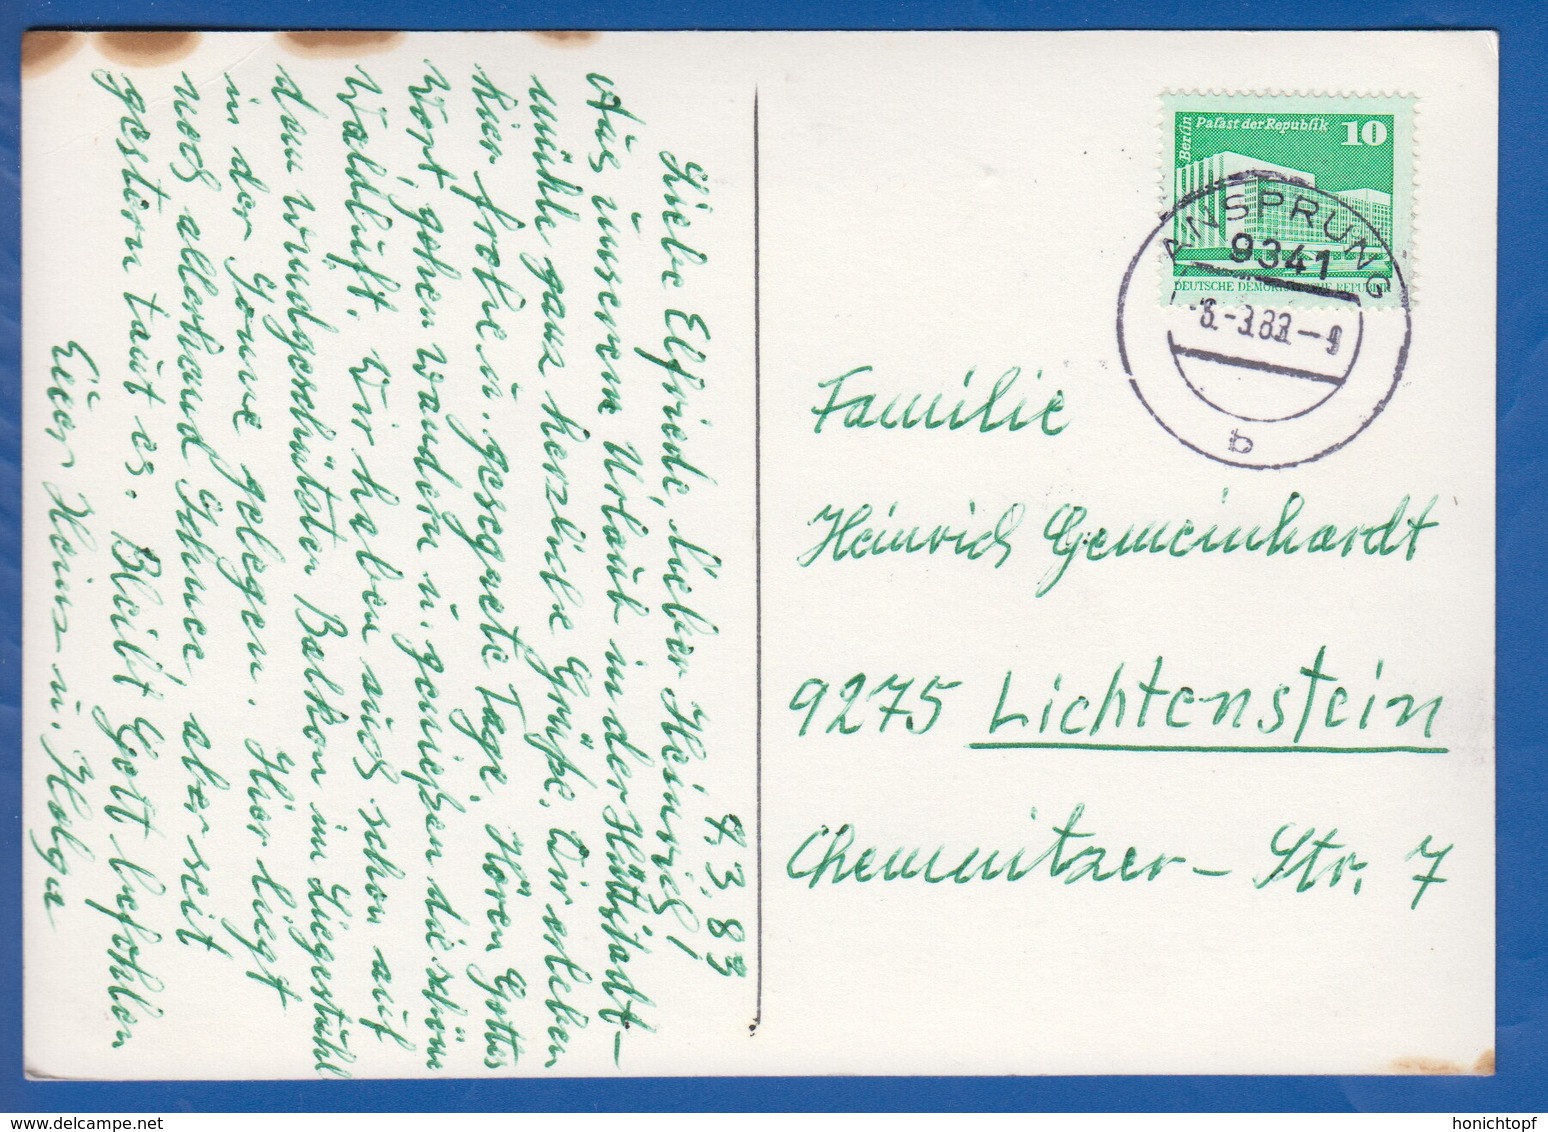 7.3.83
Liebe Elfriede, lieber Heinrich!
Aus unserem Urlaub in der Hüttstadt-
mühle ganz herzliche Grüße. Wir erleben
hier frohe u. gesegnete Tage. Hören Gottes
Wort, gehen wandern u. genießen die schöne
Waldluft. Wir haben auch schon auf
dem windgeschützten Balkon im Liegestuhl
in der Sonne gelegen. Hier liegt
noch allerhand Schnee, aber seit
gestern taut es. Bleibt Gott befohlen
Eure Heinz u. Helga
Berlin
Palast der Republik
10
DEUTSCHE DEMOKRATISCHE REPUBLIK
ANSPRUNG
9341
b
Familie
Heinrich Gemeinhardt
9275 Lichtenstein
Chemnitzer-Str. 7
honichtopf